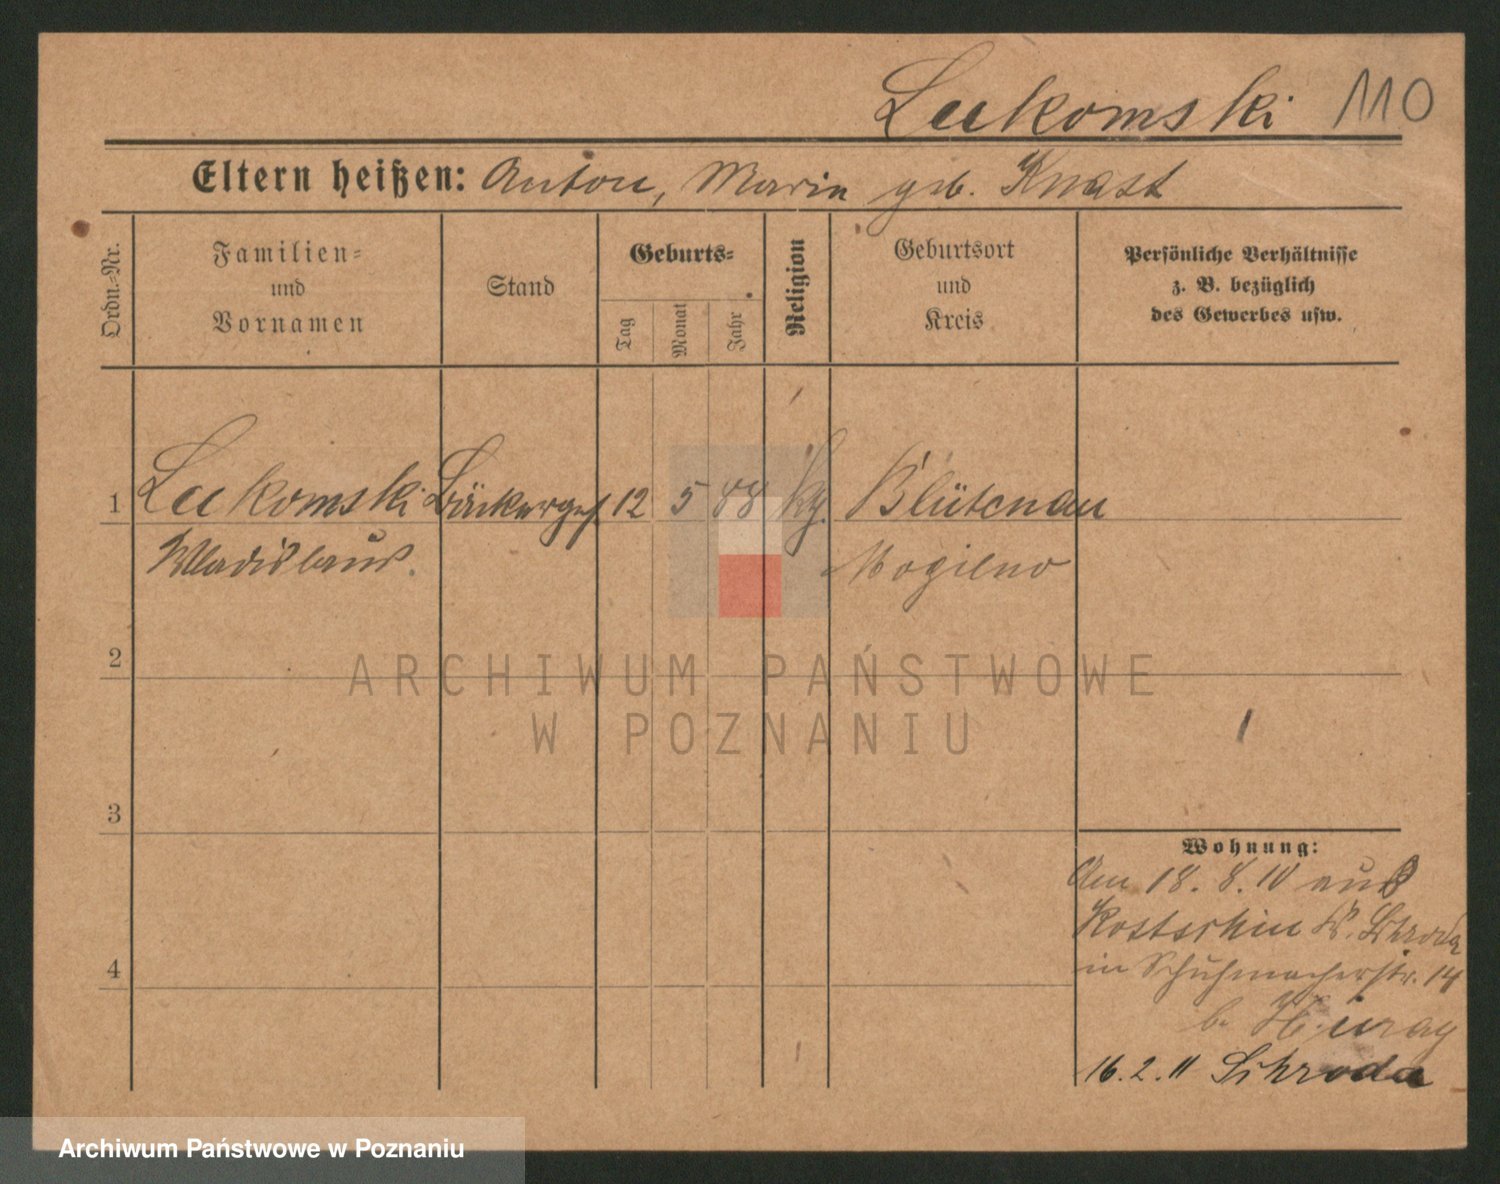 Lukomski 110
Eltern heißen: Anton, Maria geb. Knast
Ordn.-Nr.
Familien-
und
Vornamen
Stand
Geburts-
Tag
Monat
Jahr
Religion
Geburtsort
und
Kreis
Persönliche Verhältnisse
z. B. bezüglich
des Gewerbes usw.
1 Lukomski Bäckerges 12 5 88 kg. Blütenau
Wladislaus. Mogilno
2
3
4
Wohnung:
Am 18. 8. 10 aus
Kostschin K. Schroda
in Schuhmacherstr. 14
b.
16. 2. 11 Schroda
ARCHIWUM PAŃSTWOWE
W POZNANIU
Archiwum Państwowe w Poznaniu